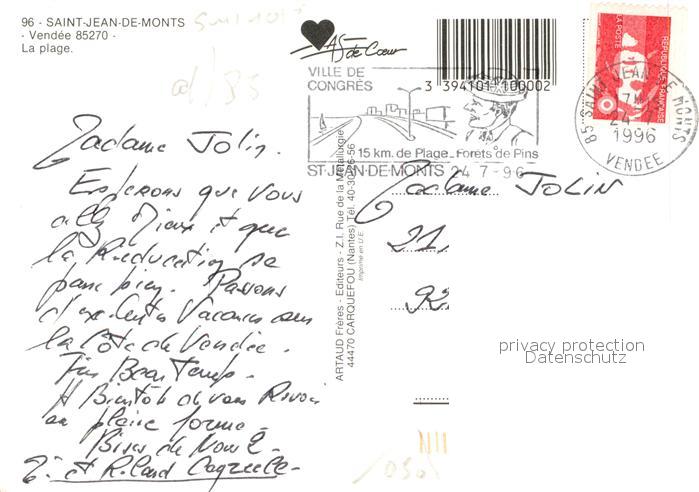 96 - SAINT-JEAN-DE-MONTS
- Vendée 85270 -
La plage.
As de Cœur
3 394101 100002
VILLE DE
CONGRÈS
15 km. de Plage_ Forêts de Pins
ST-JEAN-DE-MONTS 24 7-96
LA POSTE
REPUBLIQUE FRANÇAISE
85 SAINT JEAN DE MONTS
24 -7
1996
VENDEE
Madame JOLIN.
Esperons que vous
allez Mieux et que
la Reeducation se
passe bien. Passons
d'excellentes Vacances sur
la Côte de Vendée.
Très Beau Temps.
A Bientôt de vous Revoir
en pleine forme.
Bises de Nous 2.
et Roland
ARTAUD Frères - Editeurs - Z.I. Rue de la Métallurgie
44470 CARQUEFOU (Nantes) Tél. 40-30-26-56
Imprimé en U.E.
Madame JOLIN
21
privacy protection
Datenschutz